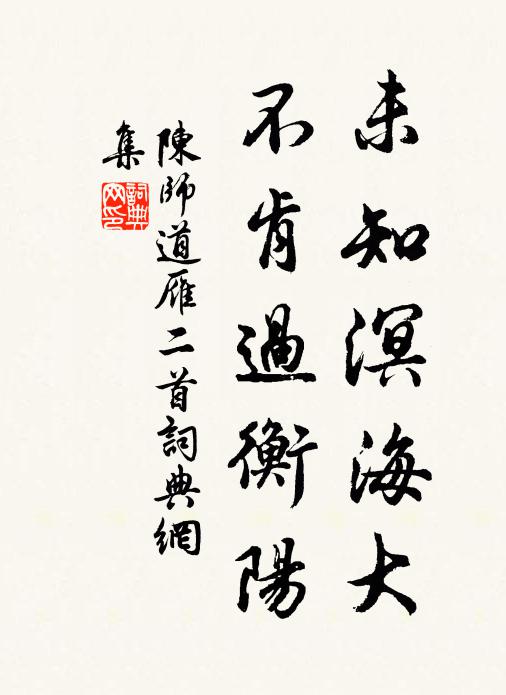 未知溟海大
不肯過衡陽
陳師道雁二首詞典網
集
詞典网印